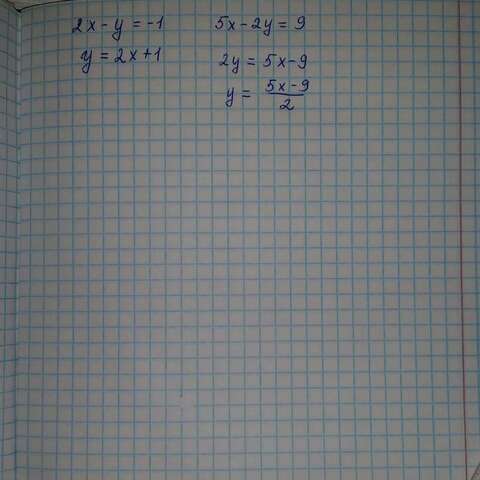 2x - y = -1
y = 2x + 1
5x - 2y = 9
2y = 5x - 9
y = \frac{5x - 9}{2}